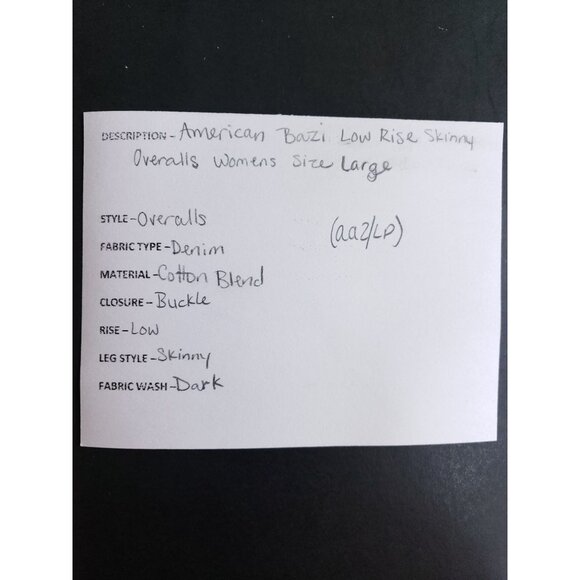 DESCRIPTION - American Bazi Low Rise Skinny
Overalls Womens Size Large
STYLE - Overalls
(aa2/LP)
FABRIC TYPE - Denim
MATERIAL - Cotton Blend
CLOSURE - Buckle
RISE - Low
LEG STYLE - Skinny
FABRIC WASH - Dark